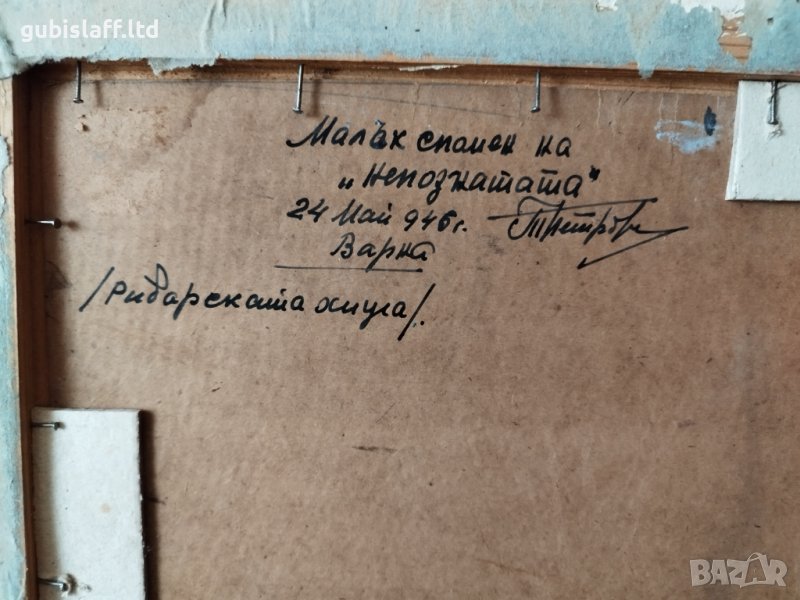 gubislaff.ltd
Малък спомен на
„Непознатата"
24 Май 946 г. ТПетров
Варна
/Рибарската хижа/.
BAZAR